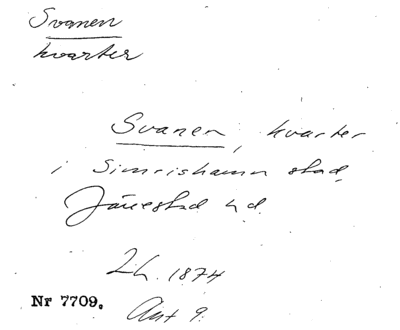 Svanen
kvarter
Svanen, kvarter
i Simrishamn stad,
Järrestad hd.
Lh. 1874
Nr 7709.
Ant 9.